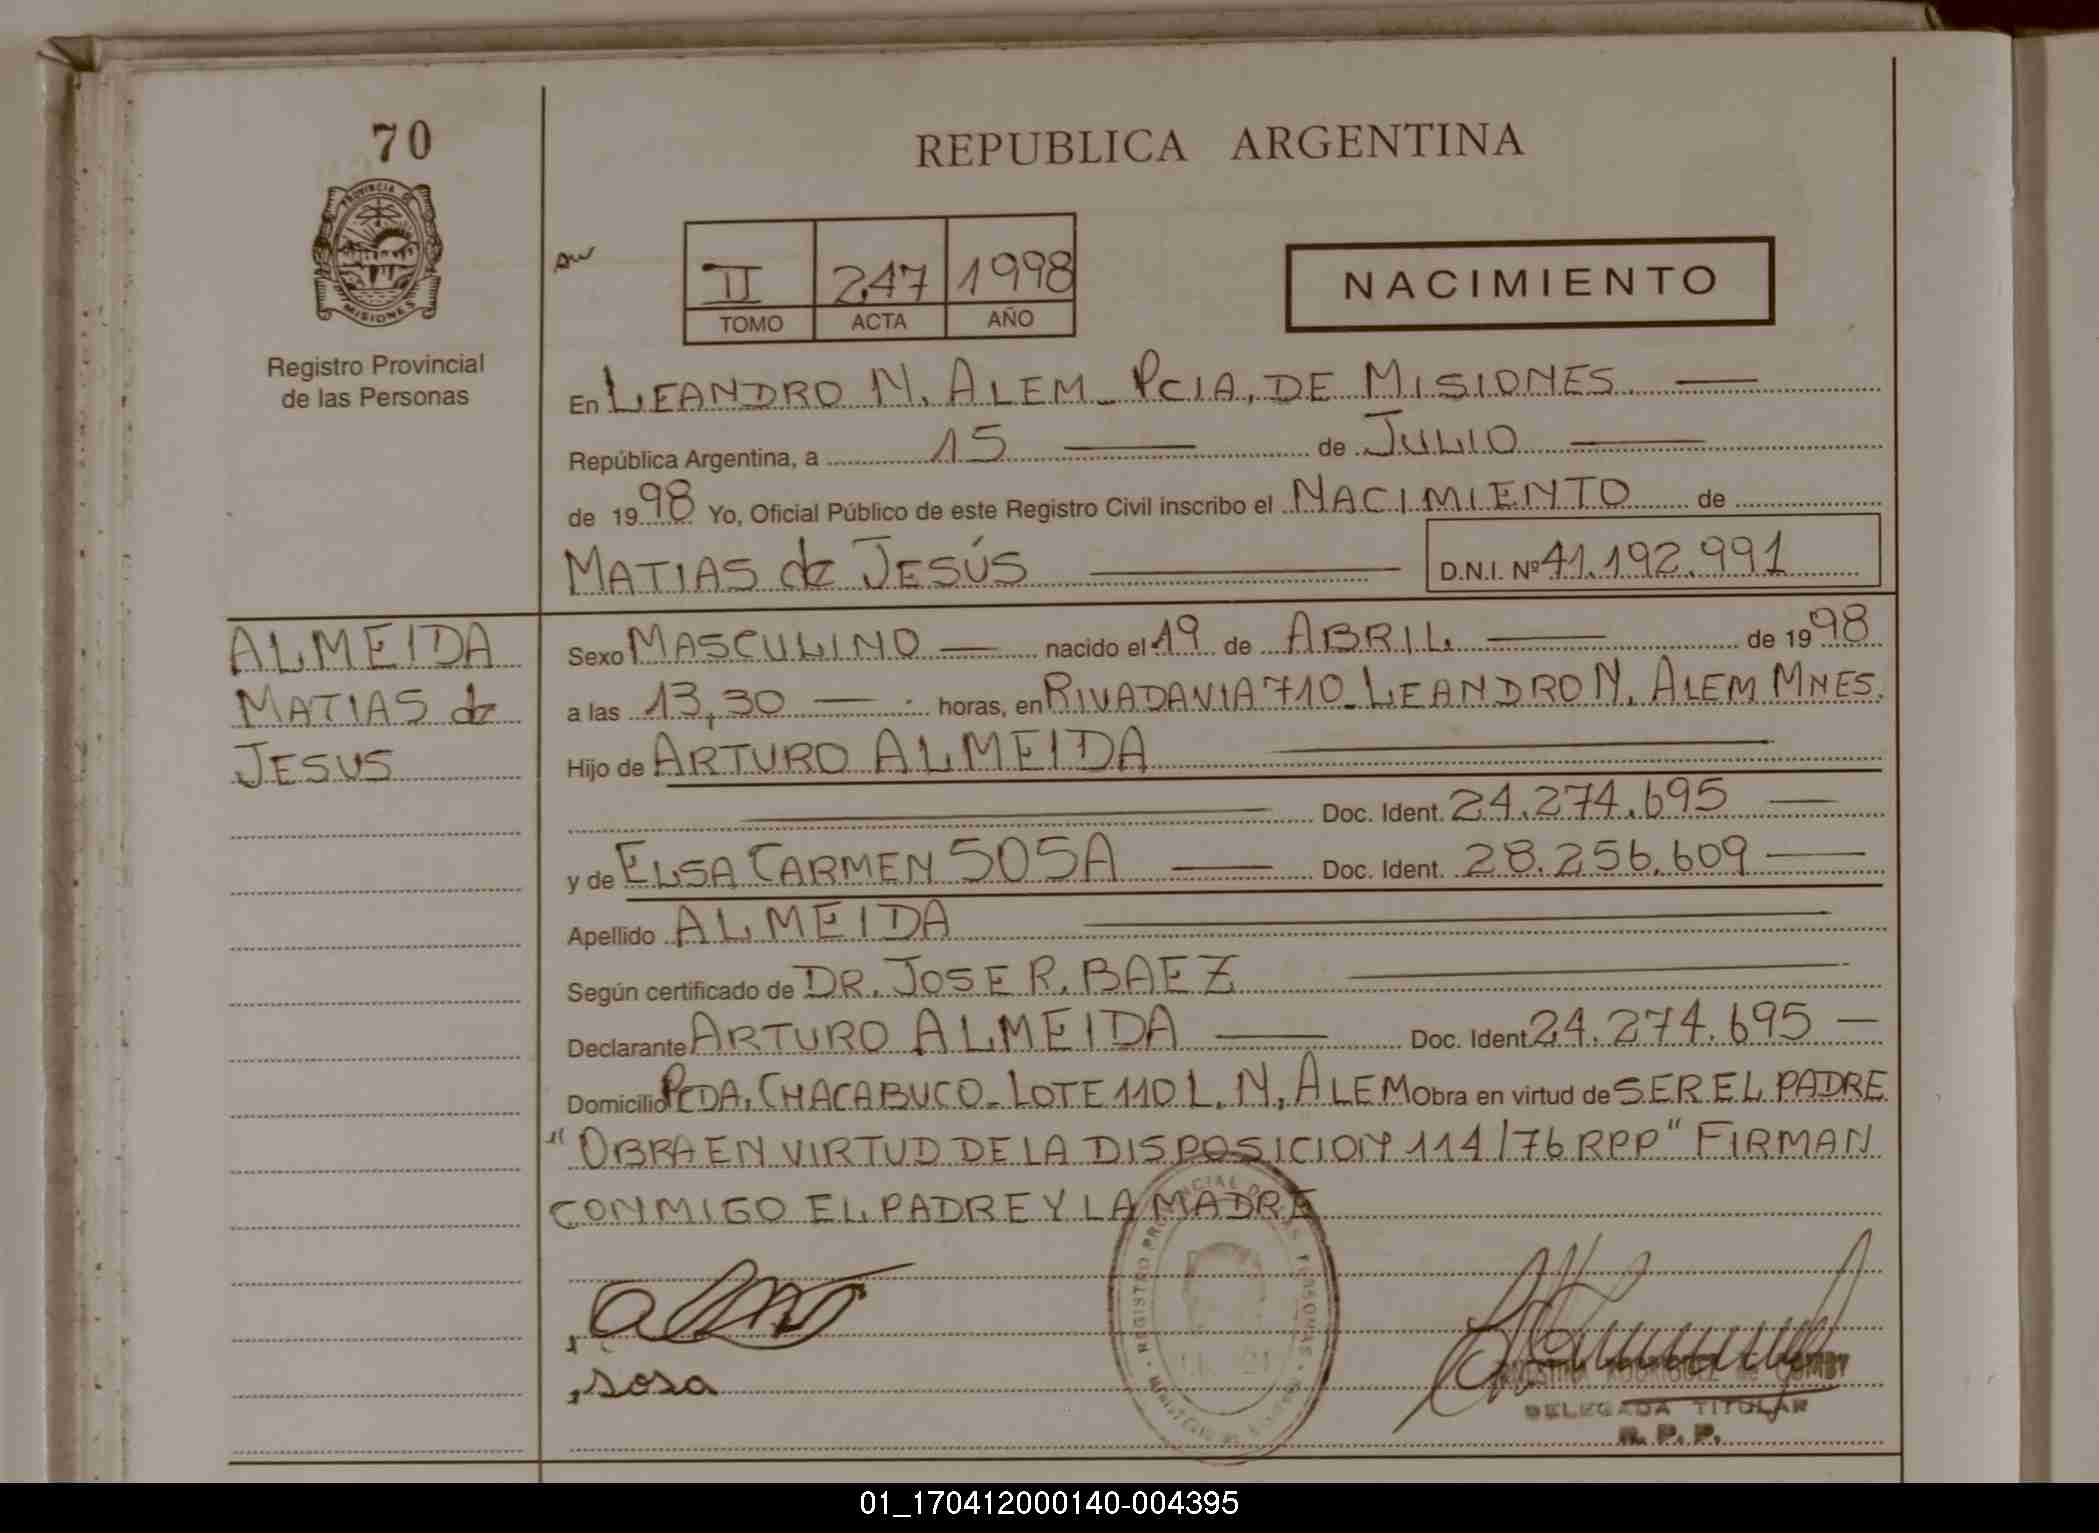 70
REPUBLICA ARGENTINA
PROVINCIA DE
MISIONES
II 247 1998
TOMO ACTA AÑO
NACIMIENTO
Registro Provincial
de las Personas
En LEANDRO N. ALEM - PCIA. DE MISIONES.
República Argentina, a 15 de JULIO
de 1998 Yo, Oficial Público de este Registro Civil inscribo el NACIMIENTO de
MATIAS de JESÚS D.N.I. Nº 41.192.991
ALMEIDA
MATIAS de
JESUS
Sexo MASCULINO nacido el 19 de ABRIL de 1998
a las 13,30 horas, en RIVADAVIA 710 - LEANDRO N. ALEM MNES.
Hijo de ARTURO ALMEIDA
Doc. Ident. 24.274.695
y de ELSA CARMEN SOSA Doc. Ident. 28.256.609
Apellido ALMEIDA
Según certificado de DR. JOSE R. BAEZ
Declarante ARTURO ALMEIDA Doc. Ident. 24.274.695
Domicilio PCDA. CHACABUCO - LOTE 110 L. N. ALEM Obra en virtud de SER EL PADRE
"OBRA EN VIRTUD DE LA DISPOSICION 114/76 RPP" FIRMAN
CONMIGO EL PADRE Y LA MADRE
REGISTRO PROVINCIAL DE LAS PERSONAS
sosa
RODRIGUEZ de
DELEGADA TITULAR
R. P. P.
01_170412000140-004395